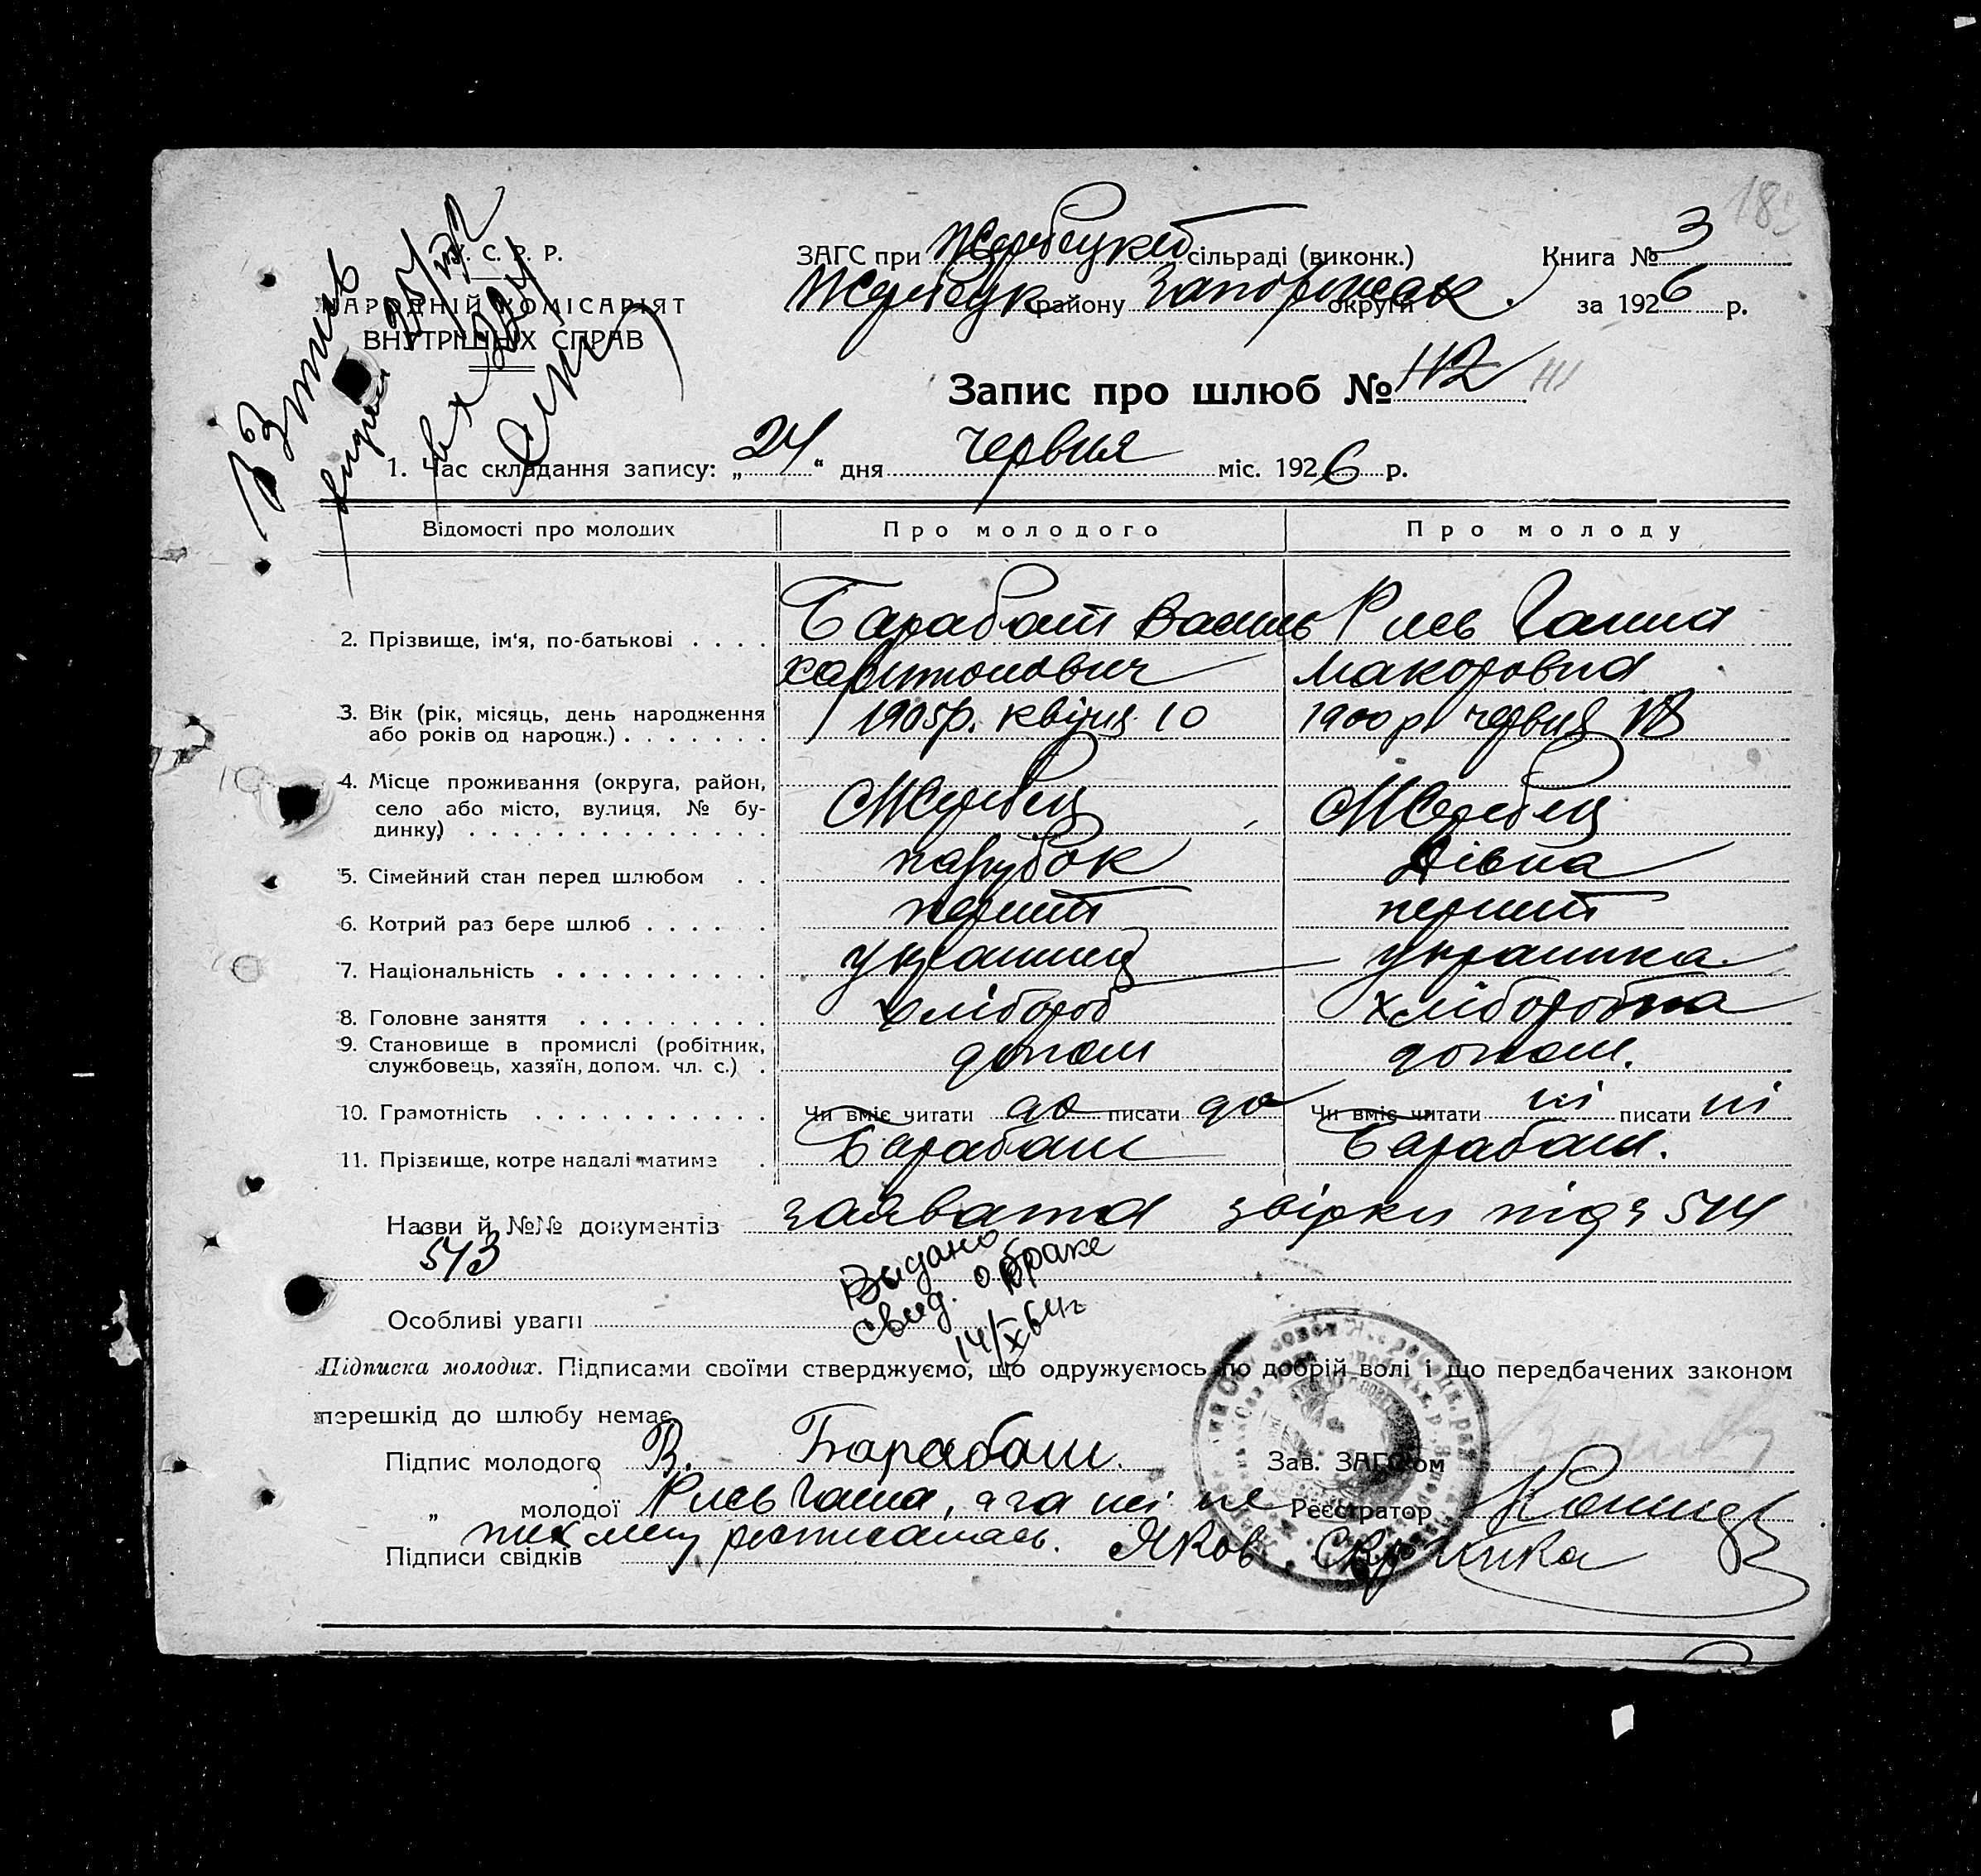 У. С. Р. Р.
НАРОДНІЙ КОМІСАРІЯТ
ВНУТРІШНІХ СПРАВ
ЗАГС при Жеребецкей сільраді (виконк.)
Жеребецк району Запоріжск округи
Книга № 3
за 1926 р.
Запис про шлюб № 112 111
1. Час складання запису: „24“ дня червня міс. 1926 р.
Відомості про молодих Про молодого Про молоду
2. Прізвище, ім'я, по-батькові . . . . Барабаш Василь Рись Ганна
Харитонович Макаровна
3. Вік (рік, місяць, день народження 1905р. квітня 10 1900р червня
або років од народж.) . . . . . . .
4. Місце проживання (округа, район,
село або місто, вулиця, № бу- Жеребец Жеребец
динку) . . . . . . . . . . . . . .
5. Сімейний стан перед шлюбом . . парубок дівка
6. Котрий раз бере шлюб . . . . . . перший перший
7. Національність . . . . . . . . . . українец українка
8. Головне заняття . . . . . . . . . хлібороб хліборобка
9. Становище в промислі (робітник,
службовець, хазяїн, допом. чл. с.) . допом допом.
10. Грамотність . . . . . . . . . . . Чи вміє читати да писати да Чи вміє читати ні писати ні
11. Прізвище, котре надалі матиме . Барабаш Барабаш.
Назви й №№ документів заява та звірки під 514
513
Выдано
свид. о браке
14/X 64г
Особливі уваги
Підписка молодих. Підписами своїми стверджуємо, що одружуємось по добрій волі і що передбачених законом
перешкід до шлюбу немає.
Підпис молодого В. Барабаш. Зав. ЗАГС'ом
„ молодої Рись Ганна, а за неї не Реєстратор
письмену росписалась. Яков Скрипка
Підписи свідків